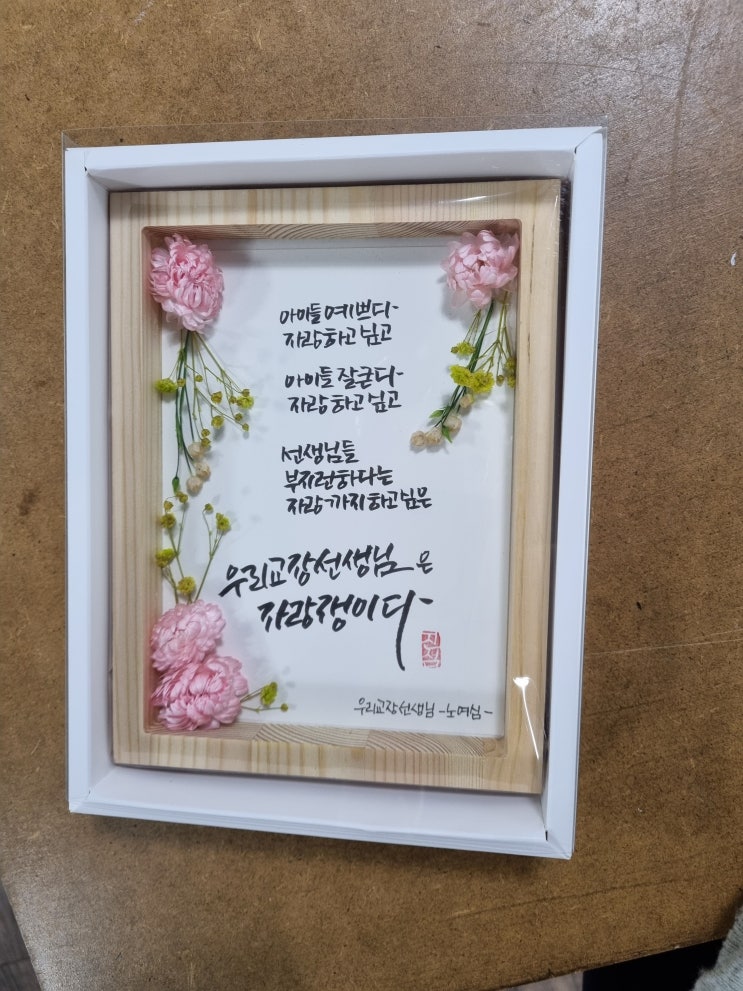 아이들 예쁘다
자랑하고 닢고
아이들 잘큰다
자랑하고 닢고
선생님들
부지런하다는
자랑까지 하고 닢은
우리교장선생님은
자랑쟁이다
우리교장선생님 -노여심-